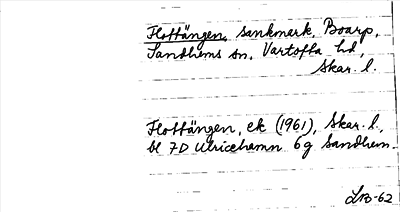 Flottängen, sankmark, Boarp,
Sandhems sn, Vartofta hd,
Skar. l.
Flottängen, ek (1961), Skar. l.,
bl 7D Ulricehamn 6g Sandhem.
LNB-62